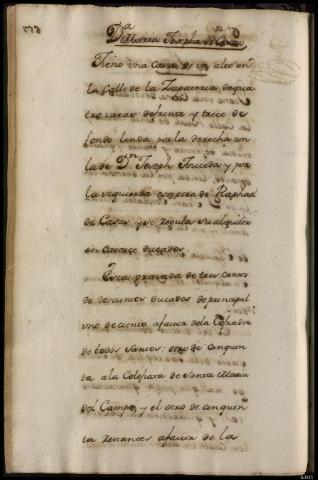 Dª Maria Josepha de Canas
Tiene una Casa de un alto en
la Calle de la Zapateria de qua
tro varas de frente y trece de
fondo linda por la derecha con
la de Dⁿ Joseph Taveda y por
la izquierda con otra de Raphael
de Casas y se regula su alquiler
en catorce ducados
Esta gravada de tres censos
de doscientos ducados de principal
uno de ciento a favor de la Cofradia
de todos Santos: otro de cinquen
ta a la Colegiata de Santa Maria
del Campo, y el otro de cinquen
ta restantes a favor de la